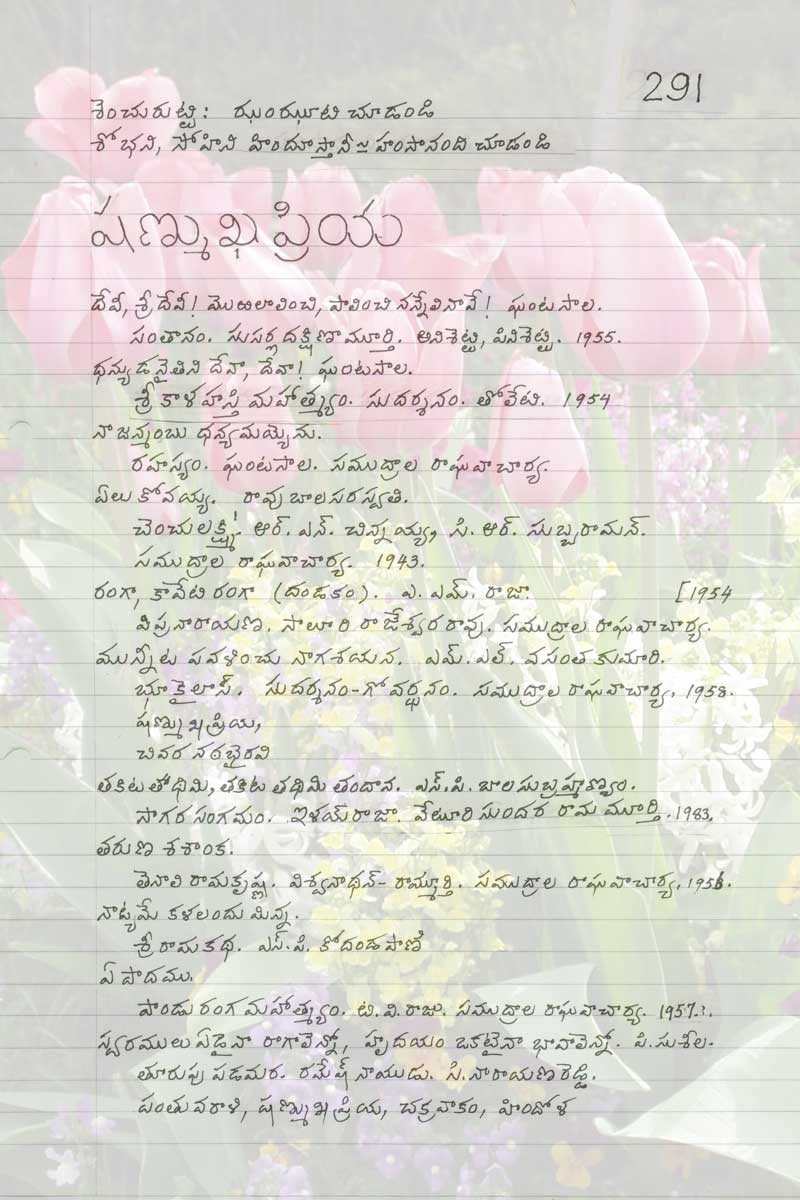 291
శెంచురుట్టి: ఝుంఝూటి చూడండి
శోభని, సోహిని హిందూస్తానీ = హంసానంది చూడండి
షణ్ముఖ ప్రియ
దేవీ, శ్రీదేవీ! మొఱలాలించి, పాలించి నన్నేలినావే! ఘంటసాల.
సంతానం. సుసర్ల దక్షిణామూర్తి. అనిశెట్టి, పినిశెట్టి. 1955.
ధన్యుడనైతిని దేవా, దేవా! ఘంటసాల.
శ్రీ కాళహస్తి మహాత్మ్యం. సుదర్శనం. తోలేటి. 1954
నా జన్మంబు ధన్యమయ్యెను.
రహస్యం. ఘంటసాల. సముద్రాల రాఘవాచార్య.
ఏలుకోవయ్య. రావు బాలసరస్వతి.
చెంచులక్ష్మి! ఆర్. ఎన్. చిన్నయ్య, సి. ఆర్. సుబ్బరామన్.
సముద్రాల రాఘవాచార్య. 1943.
రంగా, కావేటి రంగా (దండకం). ఎ. ఎమ్. రాజా. [1954
విప్రనారాయణ. సాలూరి రాజేశ్వరరావు. సముద్రాల రాఘవాచార్య.
మున్నీట పవళించు నాగశయన. ఎమ్. ఎల్. వసంతకుమారి.
భూకైలాస్. సుదర్శనం-గోవర్ధనం. సముద్రాల రాఘవాచార్య, 1958.
షణ్ముఖప్రియ,
చివర నఠభైరవి
తకిట తోధిమి, తకిట తధిమి తందాన. ఎస్.పి. బాలసుబ్రహ్మణ్యం.
సాగర సంగమం. ఇళయ్ రాజా. వేటూరి సుందర రామమూర్తి. 1983.
తరుణ శశాంక.
తెనాలి రామకృష్ణ. విశ్వనాథన్-రామ్మూర్తి. సముద్రాల రాఘవాచార్య, 1956.
నాట్యమే కళలందు మిన్న.
శ్రీరామకథ. ఎస్.పి. కోదండపాణి
ఏ పాదము.
పాండురంగ మహాత్మ్యం. టి.వి. రాజు. సముద్రాల రాఘవాచార్య. 1957.
స్వరములు ఏడైనా రాగాలెన్నో, హృదయం ఒకటైనా భావాలెన్నో. పి. సుశీల.
తూరుపు పడమర. రమేష్ నాయుడు. సి. నారాయణరెడ్డి.
పంతువరాళి, షణ్ముఖప్రియ, చక్రవాకం, హిందోళ